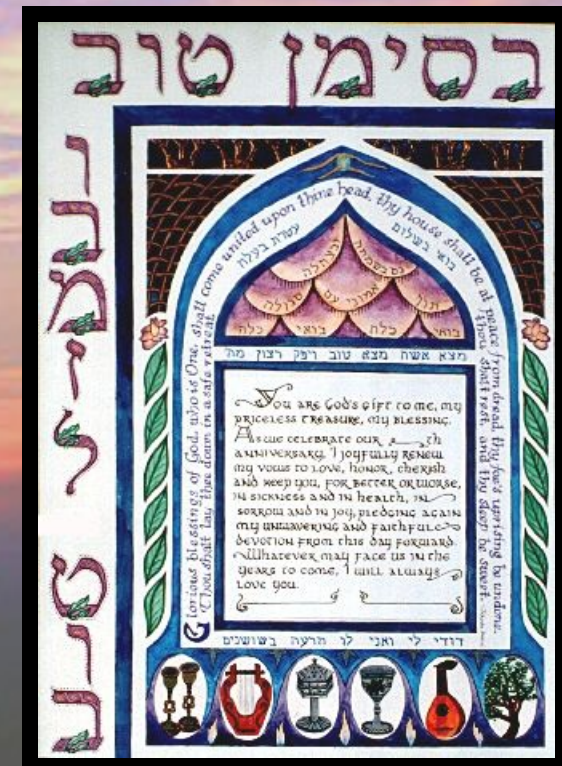 בסימן טוב
ובמזל טוב
Glorious blessings of God, who is One, shall come united upon thine head, thy house shall be at peace from dread, thy foe's uprising be undone.
Thou shalt lay thee down in a safe retreat,
Thou shalt rest, and thy sleep be sweet.
בואי בשלום עטרת בעלה
גם בשמחה ובצהלה
תוך אמוני עם סגולה
בואי כלה בואי כלה
מצא אשה מצא טוב ויפק רצון מה'
You are God's gift to me, my
priceless treasure, my blessing.
As we celebrate our th
anniversary, I joyfully renew
my vows to love, honor, cherish
and keep you, for better or worse,
in sickness and in health, in
sorrow and in joy, pledging again
my unwavering and faithful
devotion from this day forward.
Whatever may face us in the
years to come, I will always
love you.
דודי לי ואני לו הרעה בשושנים